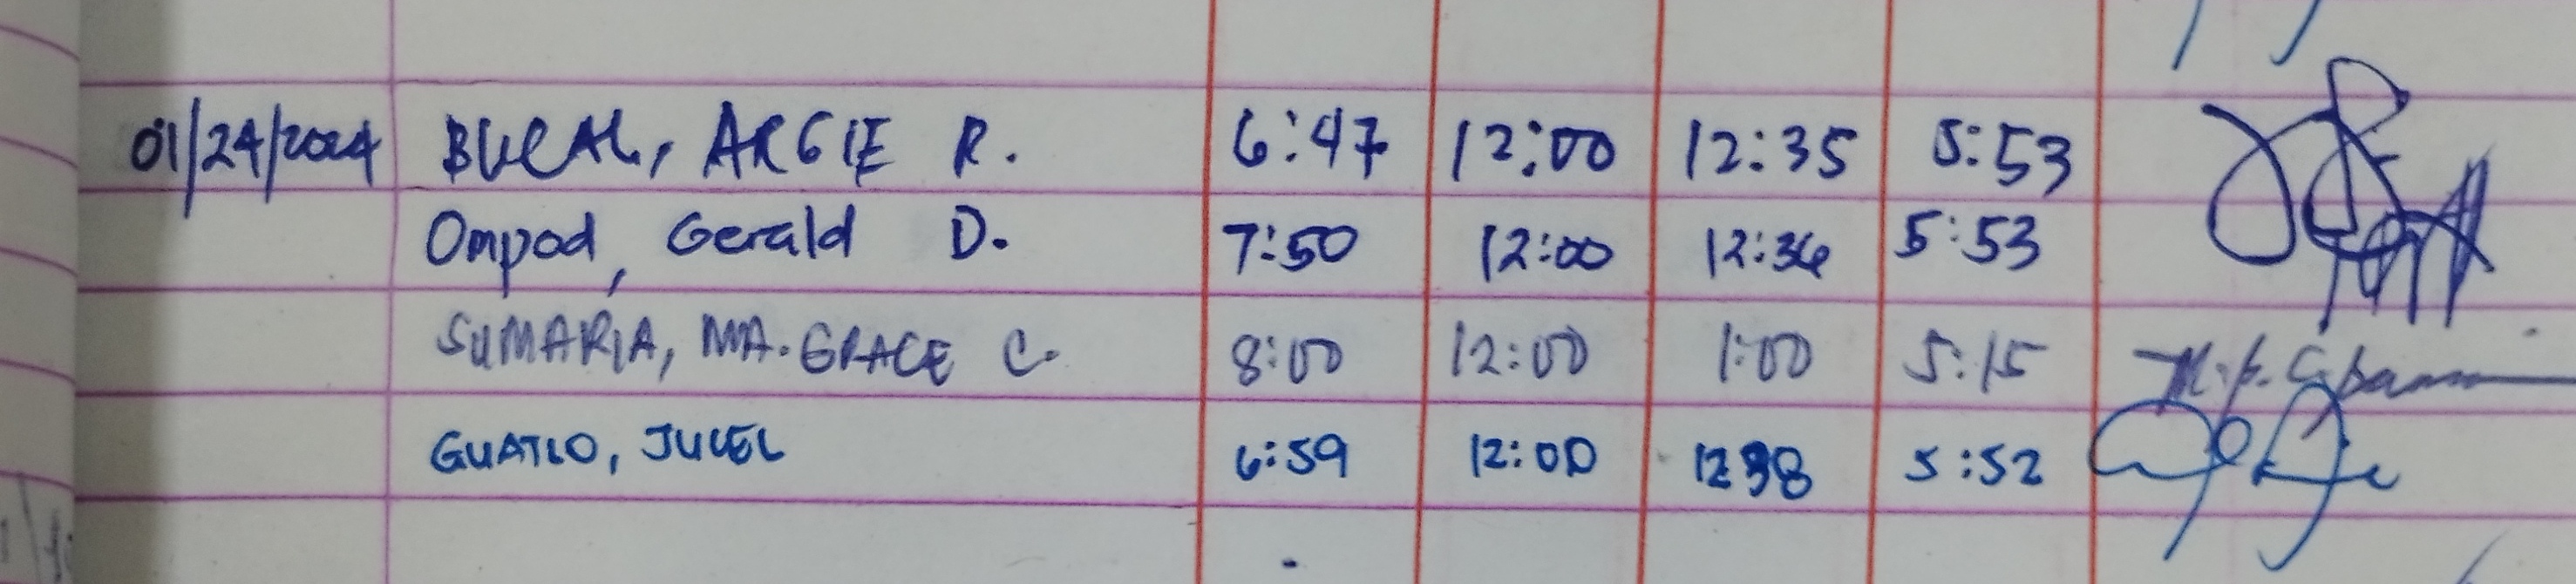 01/24/2024 BUCAL, ARGIE R. 6:47 12:00 12:35 5:53
Ompad, Gerald D. 7:50 12:00 12:36 5:53
SUMARIA, MA. GRACE C. 8:00 12:00 1:00 5:15
GUATLO, JUCEL 6:59 12:00 1238 5:52